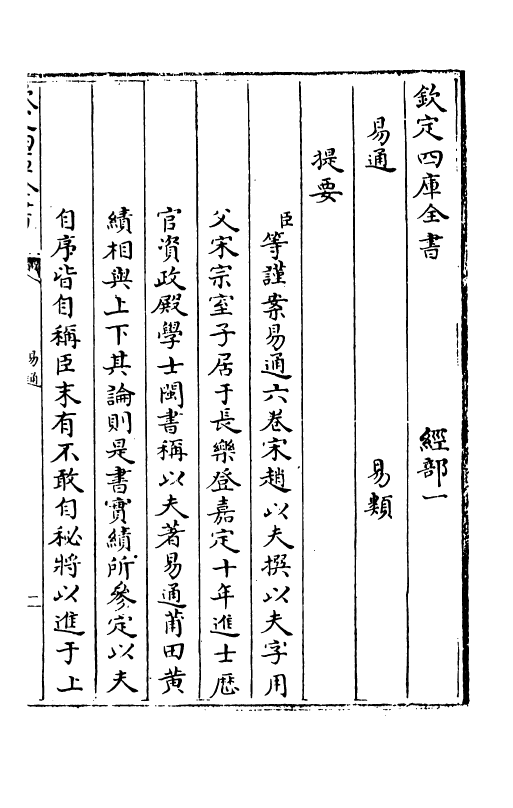 欽定四庫全書　經部一
易通　易類
提要
臣等謹案易通六卷宋趙以夫撰以夫字用
父宋宗室子居于長樂登嘉定十年進士歴
官資政殿學士閩書稱以夫著易通莆田黃
績相與上下其論則是書實績所參定以夫
自序皆自稱臣末有不敢自秘將以進于上
易通
二